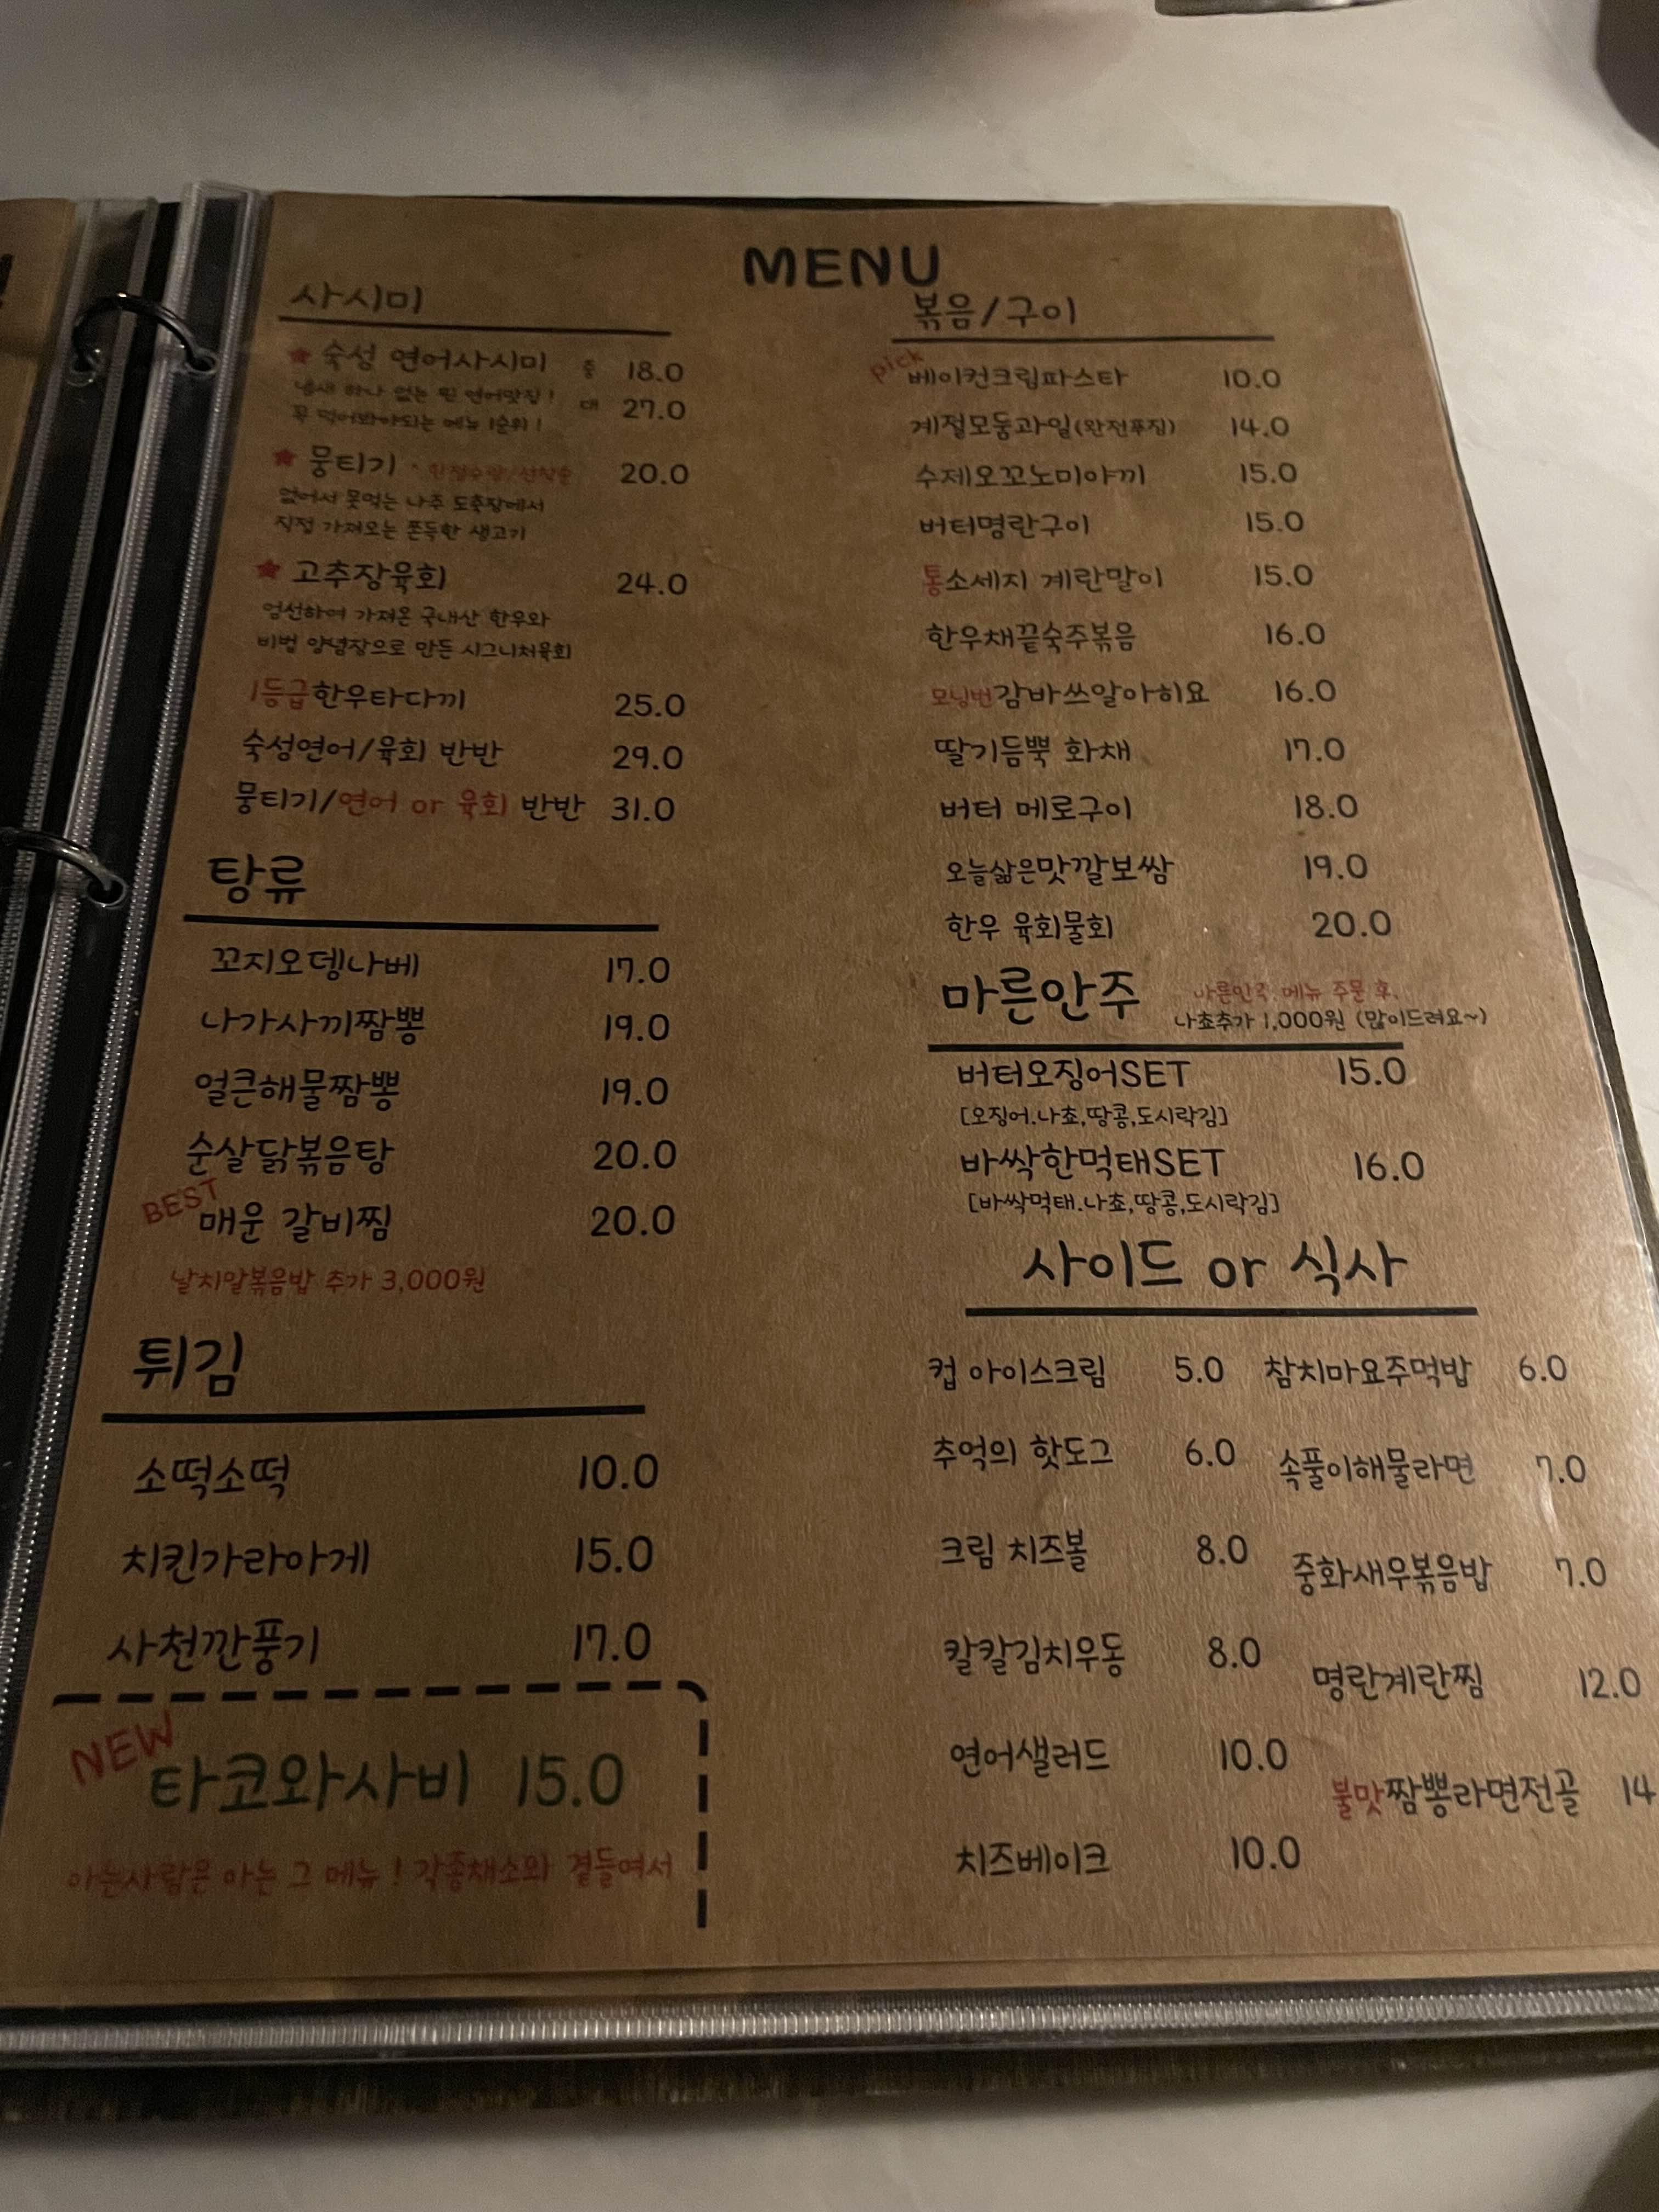 MENU
사시미
★ 숙성 연어사시미 중 18.0
냄새 하나 없는 찐 연어맛집!
대 27.0
꼭 먹어봐야되는 메뉴 1순위!
★ 뭉티기 · 한정수량/선착순 20.0
없어서 못먹는 나주 도축장에서
직접 가져오는 쫀득한 생고기
★ 고추장육회 24.0
엄선하여 가져온 국내산 한우와
비법 양념장으로 만든 시그니처육회
1등급한우타다끼 25.0
숙성연어/육회 반반 29.0
뭉티기/연어 or 육회 반반 31.0
탕류
꼬지오뎅나베 17.0
나가사끼짬뽕 19.0
얼큰해물짬뽕 19.0
순살닭볶음탕 20.0
BEST
매운 갈비찜 20.0
날치알볶음밥 추가 3,000원
튀김
소떡소떡 10.0
치킨가라아게 15.0
사천깐풍기 17.0
NEW
타코와사비 15.0
아는사람은 아는 그 메뉴! 각종채소와 곁들여서
볶음/구이
pick
베이컨크림파스타 10.0
계절모둠과일(완전푸짐) 14.0
수제오꼬노미야끼 15.0
버터명란구이 15.0
통소세지 계란말이 15.0
한우채끝숙주볶음 16.0
모닝번감바쓰알아히요 16.0
딸기듬뿍 화채 17.0
버터 메로구이 18.0
오늘삶은맛깔보쌈 19.0
한우 육회물회 20.0
마른안주
마른안주 메뉴 주문 후,
나쵸추가 1,000원 (많이드려요~)
버터오징어SET 15.0
[오징어.나쵸,땅콩,도시락김]
바싹한먹태SET 16.0
[바싹먹태.나쵸,땅콩,도시락김]
사이드 or 식사
컵 아이스크림 5.0
추억의 핫도그 6.0
크림 치즈볼 8.0
칼칼김치우동 8.0
연어샐러드 10.0
치즈베이크 10.0
참치마요주먹밥 6.0
속풀이해물라면 7.0
중화새우볶음밥 7.0
명란계란찜 12.0
불맛짬뽕라면전골 14